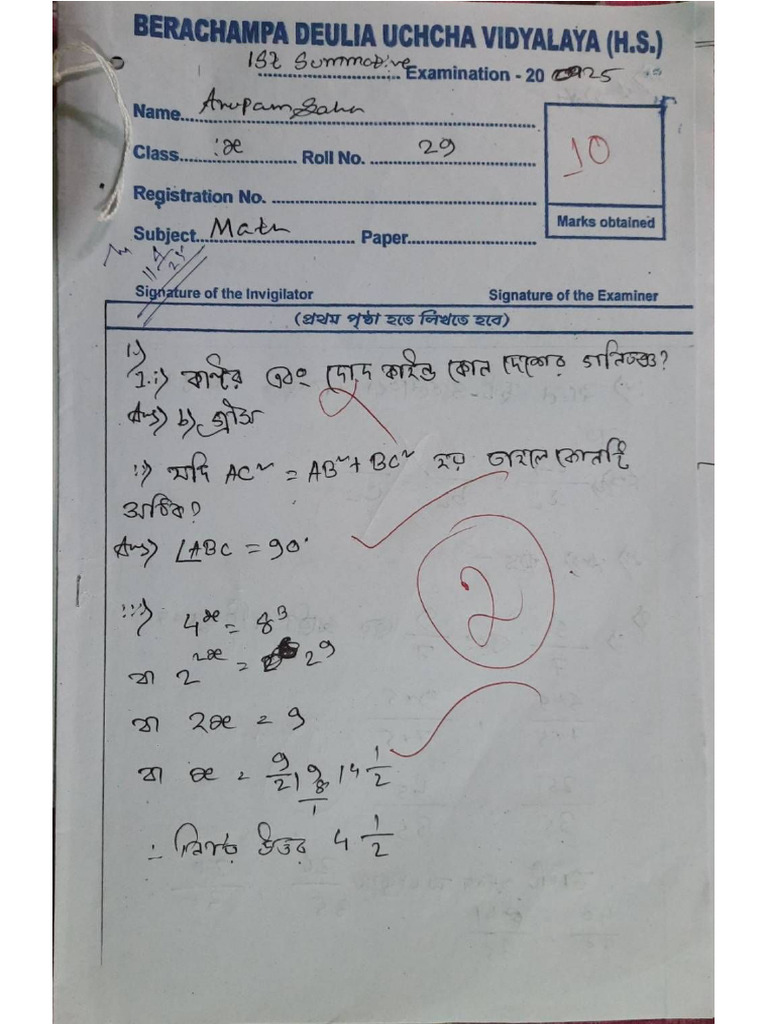 BERACHAMPA DEULIA UCHCHA VIDYALAYA (H.S.)
1st Summative Examination - 20 2025
Name Anupam Saha
Class ix Roll No. 29
10
Registration No.
Marks obtained
Subject Math Paper
Signature of the Invigilator Signature of the Examiner
(প্রথম পৃষ্ঠা হতে লিখতে হবে)
1.)
1.i) এবং কোন দেশের
Ans) b) গ্রীস
ii) যদি AC² = AB² + BC² হয় তাহলে কোনটি
সঠিক?
Ans) ∠ABC = 90°
2
iii) 4^x = 8^3
বা 2^2x = 2^9
বা 2x = 9
বা x = 9/2 4 1/2
∴ নির্ণেয় উত্তর 4 1/2